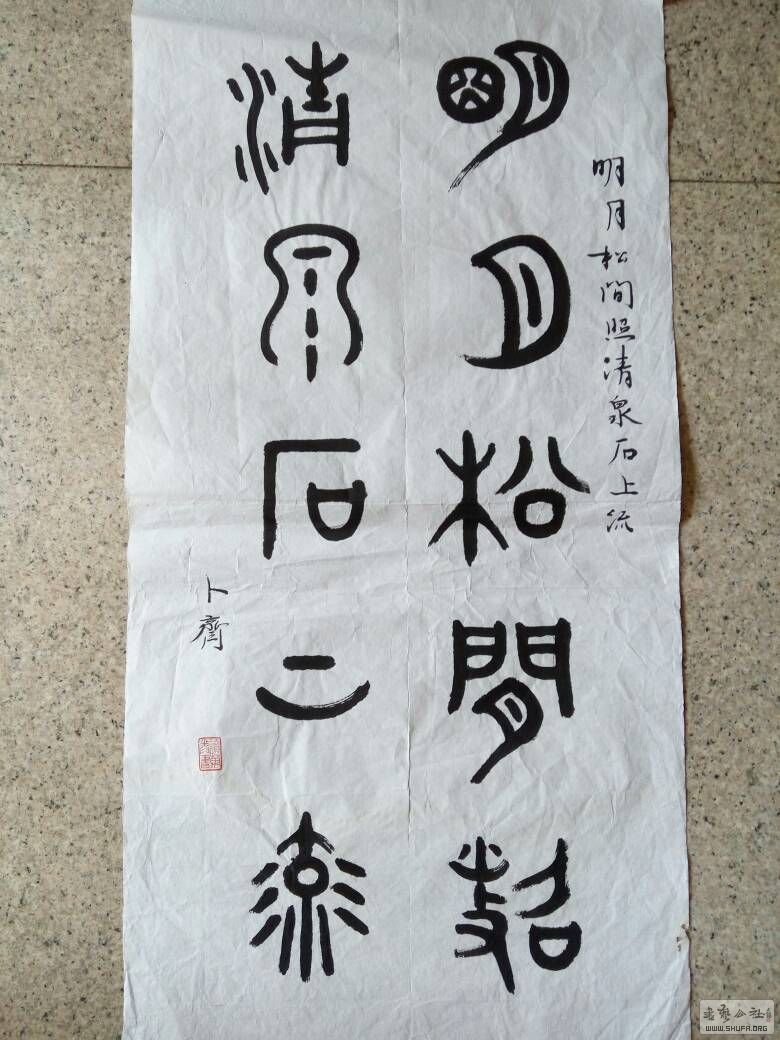 明月松間照
清泉石上流
明月松間照清泉石上流
卜齋
書藝公社
WWW.SHUFA.ORG